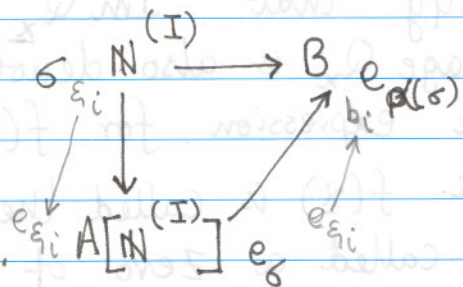 σ ℕ^(I) → B e_α(σ)
ξ_i b_i
e_ξ_i A[ℕ^(I)] e_σ e_ξ_i